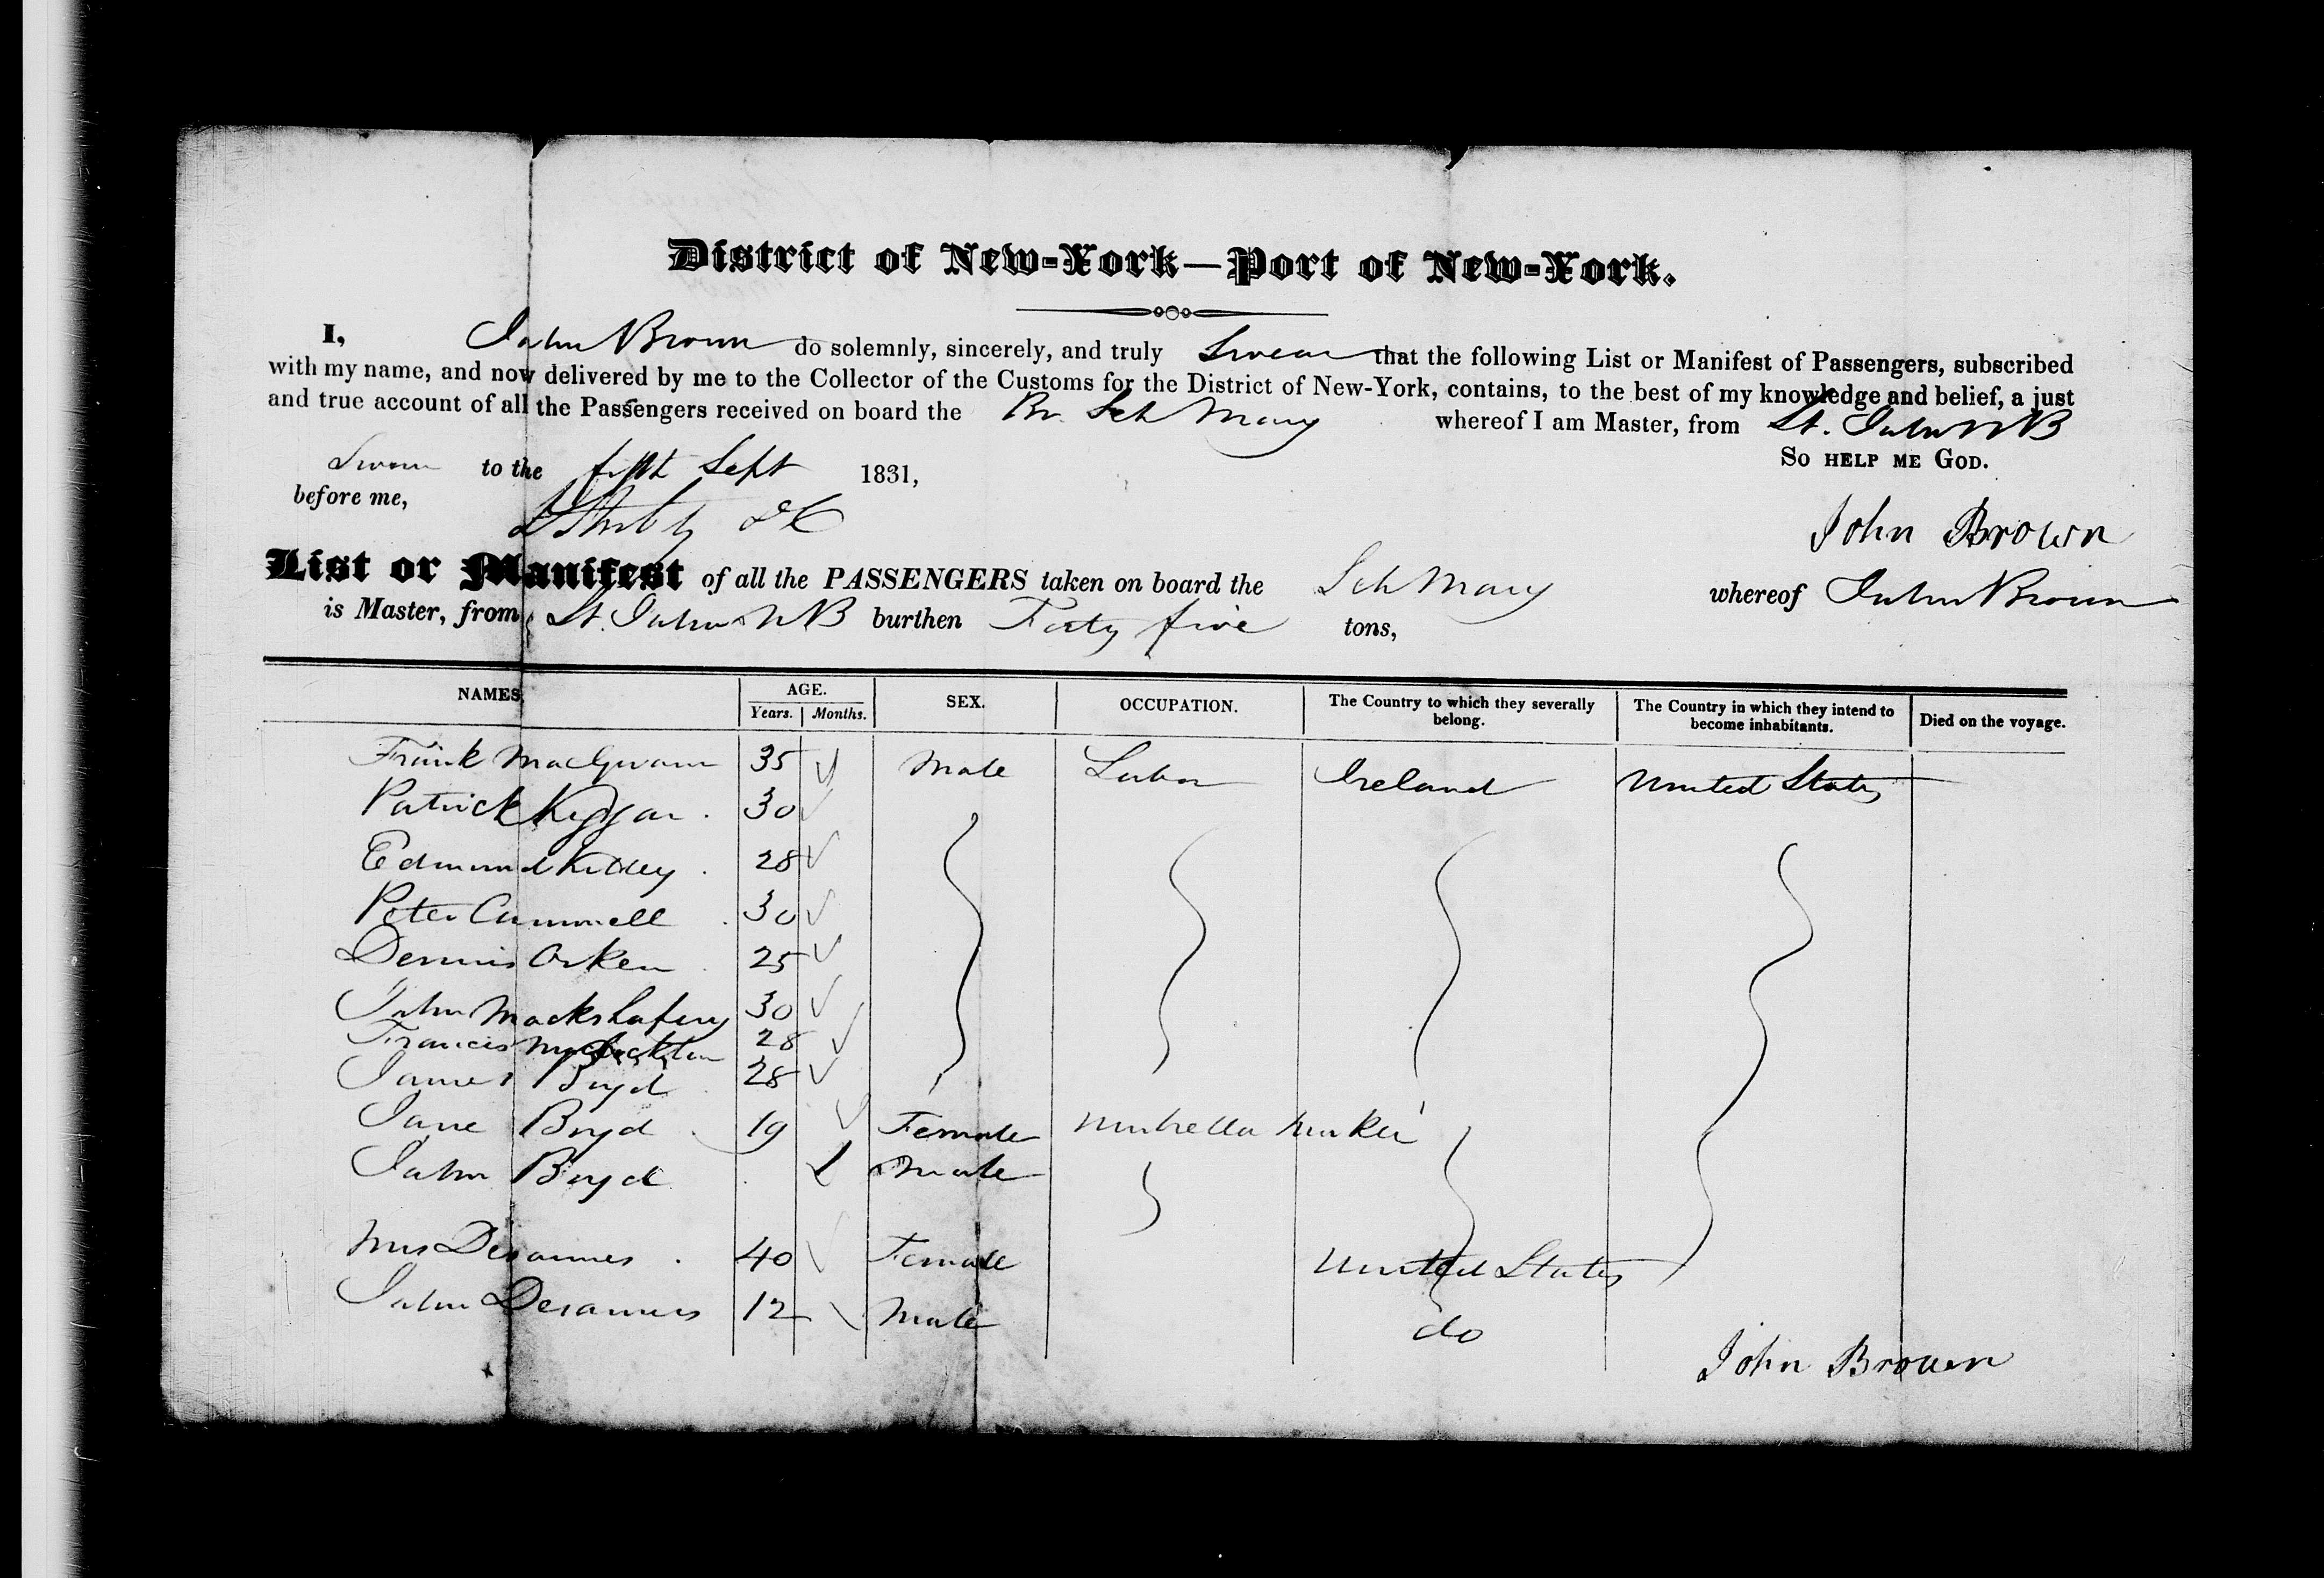 District of New-York—Port of New-York.
I, John Brown do solemnly, sincerely, and truly Swear that the following List or Manifest of Passengers, subscribed
with my name, and now delivered by me to the Collector of the Customs for the District of New-York, contains, to the best of my knowledge and belief, a just
and true account of all the Passengers received on board the Br. Sch Mary whereof I am Master, from St. John NB
So help me God.
Sworn to the fifth Sept 1831,
before me,
John Brown
List or Manifest of all the PASSENGERS taken on board the Sch Mary whereof John Brown
is Master, from St. John NB burthen Forty five tons,
NAMES. AGE. SEX. OCCUPATION. The Country to which they severally belong. The Country in which they intend to become inhabitants. Died on the voyage.
Years. Months.
Frank 35 Male Labor Ireland United States
Patrick 30
Edmund 28
Peter Cummell 30
Dennis Orken 25
John Mackshafery 30
Francis 28
James Boyd 28
Jane Boyd 19 Female Umbrella Maker
John Boyd Male
Mrs Desannes 40 Female United States
John Desannes 12 Male do
John Brown